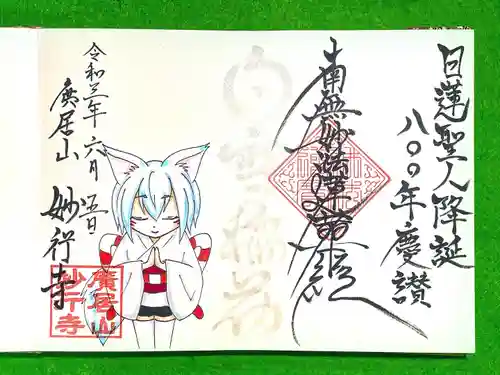 日蓮聖人降誕
八〇〇年慶讃
南無妙法蓮華経
白雲稲荷
令和三年六月五日
廣居山 妙行寺
廣居山
妙行寺